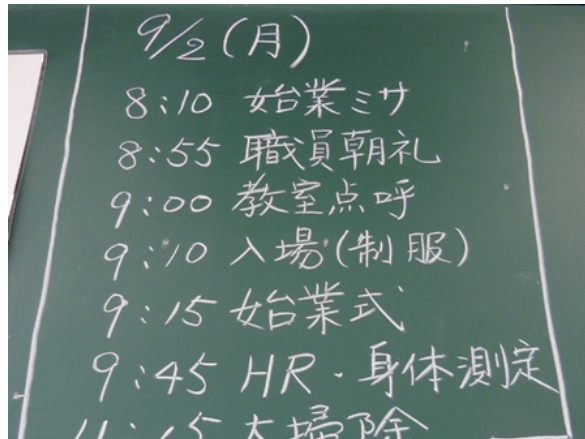 9/2(月)
8:10 始業ミサ
8:55 職員朝礼
9:00 教室点呼
9:10 入場(制服)
9:15 始業式
9:45 HR・身体測定
11:15 大掃除